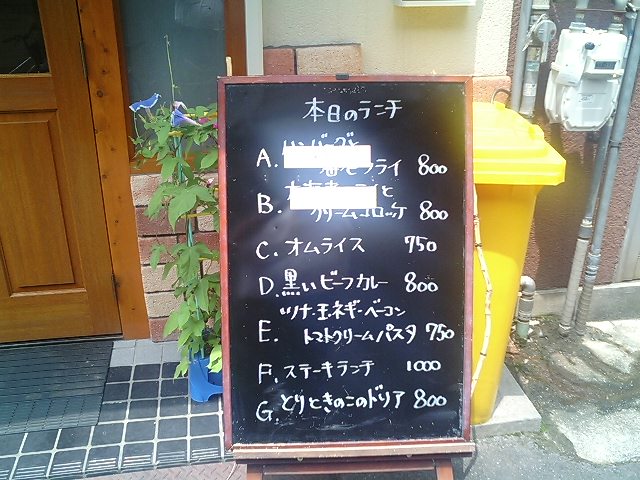 本日のランチ
A. ハンバーグと
フライ 800
B.
クリームコロッケ 800
C. オムライス 750
D. 黒いビーフカレー 800
ツナ・玉ネギ・ベーコン
E. トマトクリームパスタ 750
F. ステーキランチ 1000
G. とりときのこのドリア 800